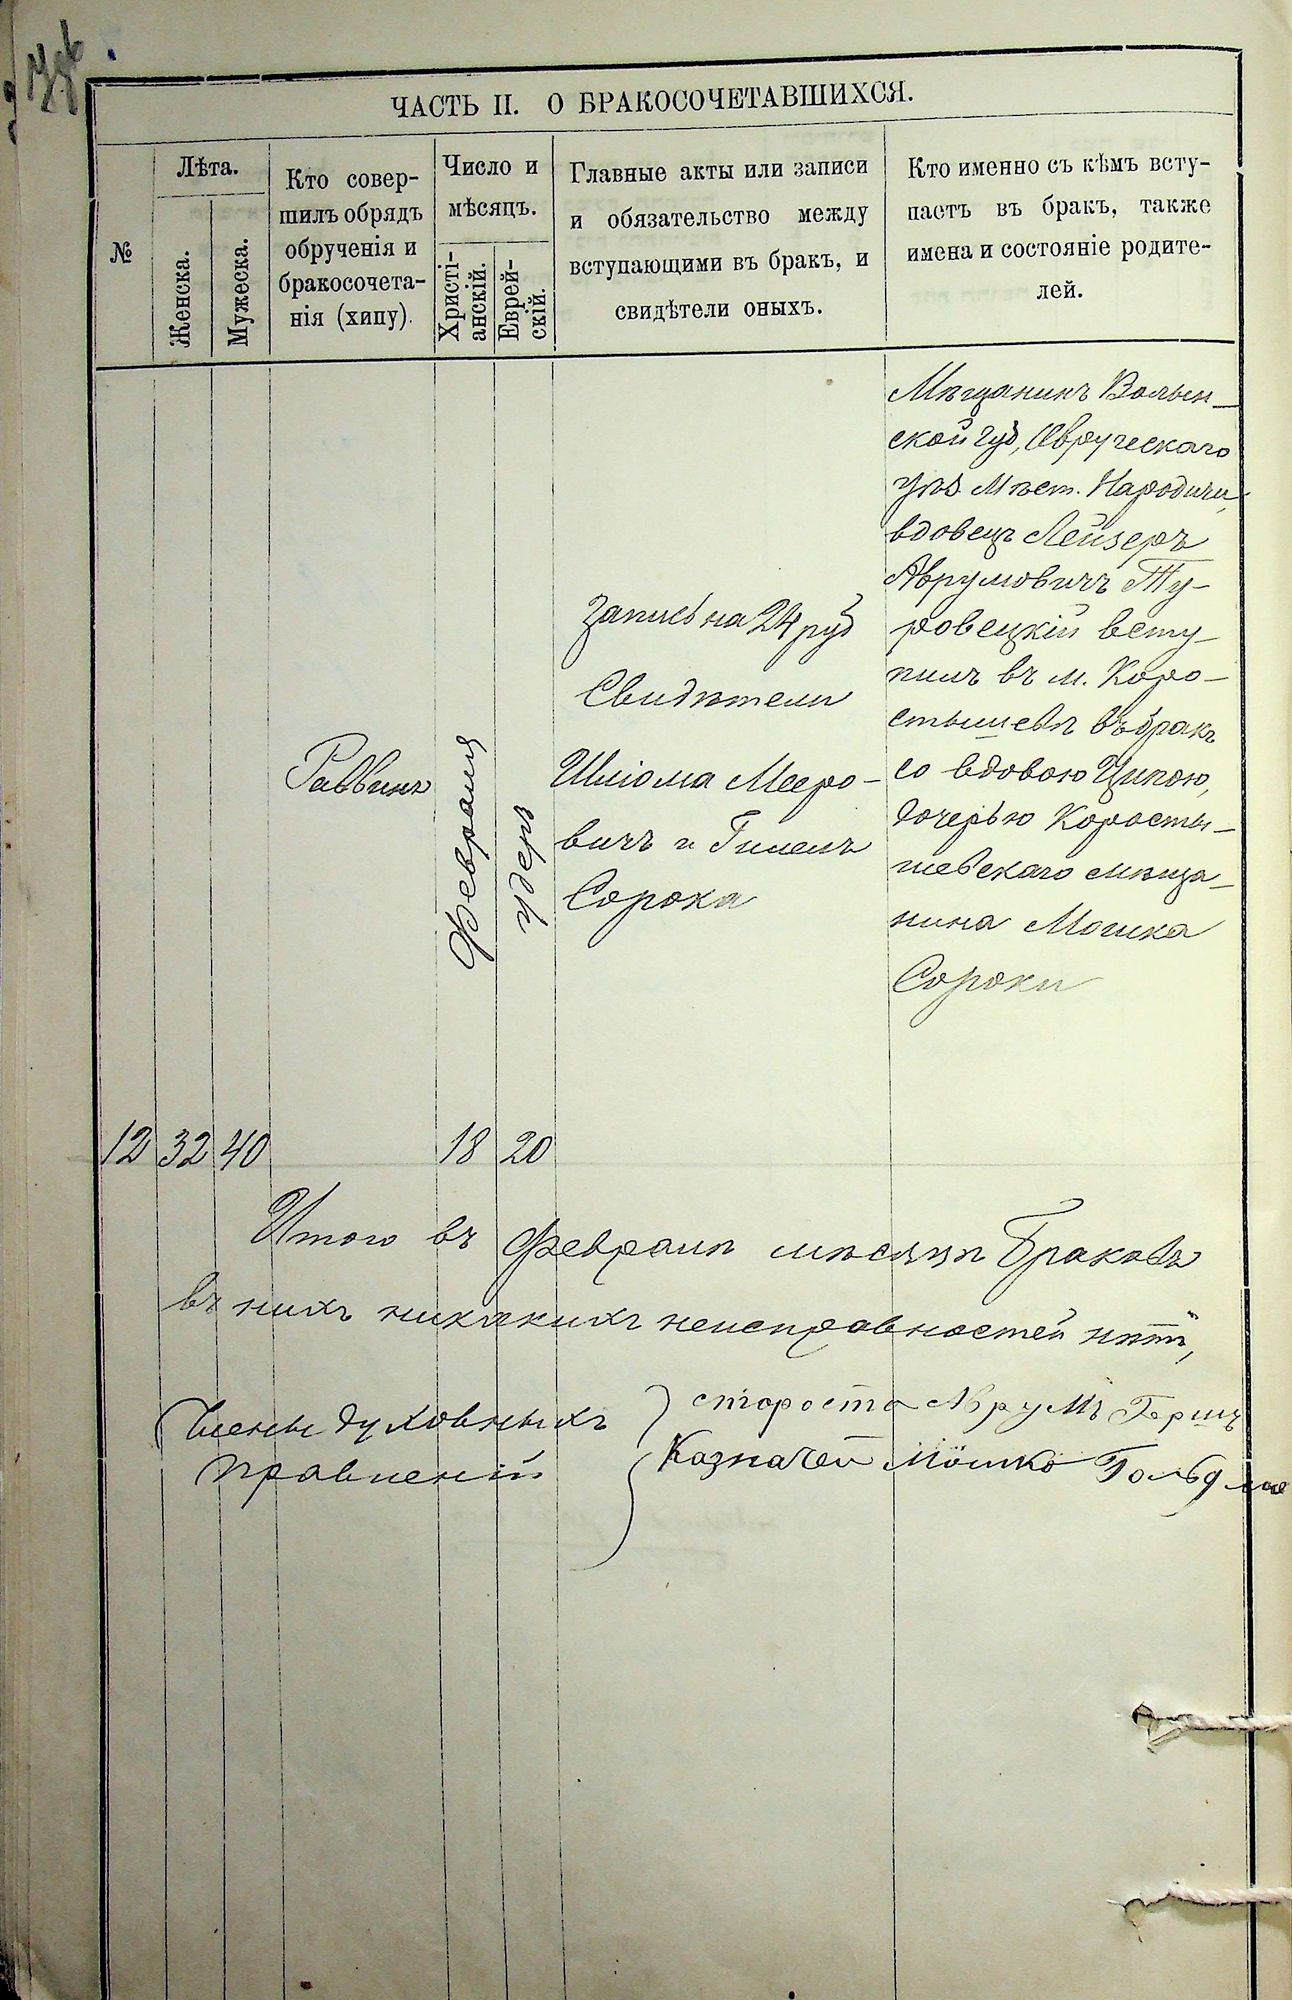 ЧАСТЬ II. О БРАКОСОЧЕТАВШИХСЯ.
№
Лѣта.
Женска.
Мужеска.
Кто совер-
шилъ обрядъ
обрученія и
бракосочета-
нія (хипу).
Число и
мѣсяцъ.
Христі-
анскій.
Еврей-
скій.
Главные акты или записи
и обязательство между
вступающими въ бракъ, и
свидѣтели оныхъ.
Кто именно съ кѣмъ всту-
паетъ въ бракъ, также
имена и состояніе родите-
лей.
12
32
40
Раввинъ
Февраля
18
Удеръ
20
Запись на 24 руб
Свидѣтели
Шліома Мееро-
вичъ и Гилель
Сорока
Мѣщанинъ Волын-
ской губ, Овручскаго
уѣз. Мѣст. Народичи,
вдовецъ Лейзеръ
Аврумовичъ Ту-
ровецкій всту-
пилъ въ м. Коро-
стышевѣ въ бракъ
со вдовою Ципою,
дочерью Коросты-
шевскаго мѣща-
нина Мошка
Сороки
Итого въ Февралѣ мѣсяцѣ Браковъ
въ нихъ никакихъ неисправностей нѣтъ,
Члены духовныхъ
правленій
староста Аврумъ Гершъ
Казначей Мошко